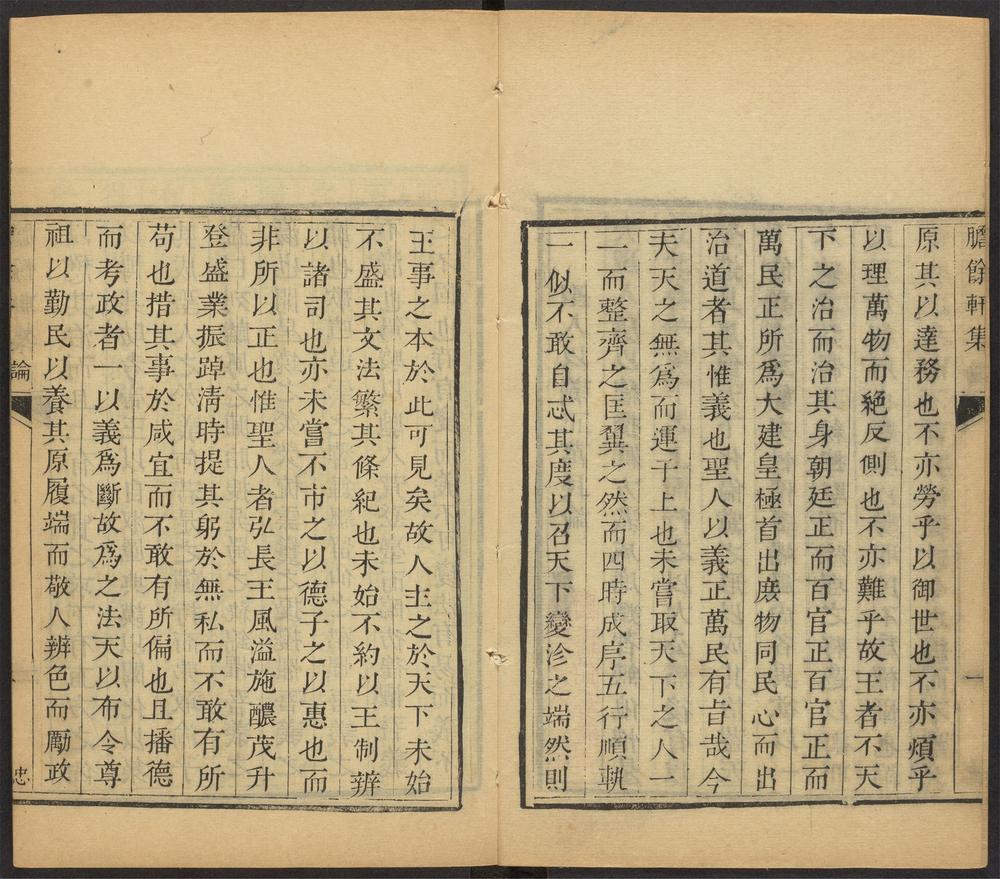 膽餘軒集
一
原其以達務也不亦勞乎以御世也不亦煩乎
以理萬物而絶反側也不亦難乎故王者不天
下之治而治其身朝廷正而百官正百官正而
萬民正所爲大建皇極首出庻物同民心而出
治道者其惟義也聖人以義正萬民有旨哉今
夫天之無爲而運于上也未嘗取天下之人一
一而整齊之匡翼之然而四時成序五行順軌
一似不敢自忒其度以召天下變沴之端然則
王事之本於此可見矣故人主之於天下未始
不盛其文法繁其條紀也未始不約以王制辨
以諸司也亦未嘗不市之以德子之以惠也而
非所以正也惟聖人者弘長王風溢施醲茂升
登盛業振踔淸時提其躬於無私而不敢有所
苟也措其事於咸宜而不敢有所偏也且播德
而考政者一以義爲斷故爲之法天以布令尊
祖以勤民以養其原履端而敬人辨色而勵政
論
忠